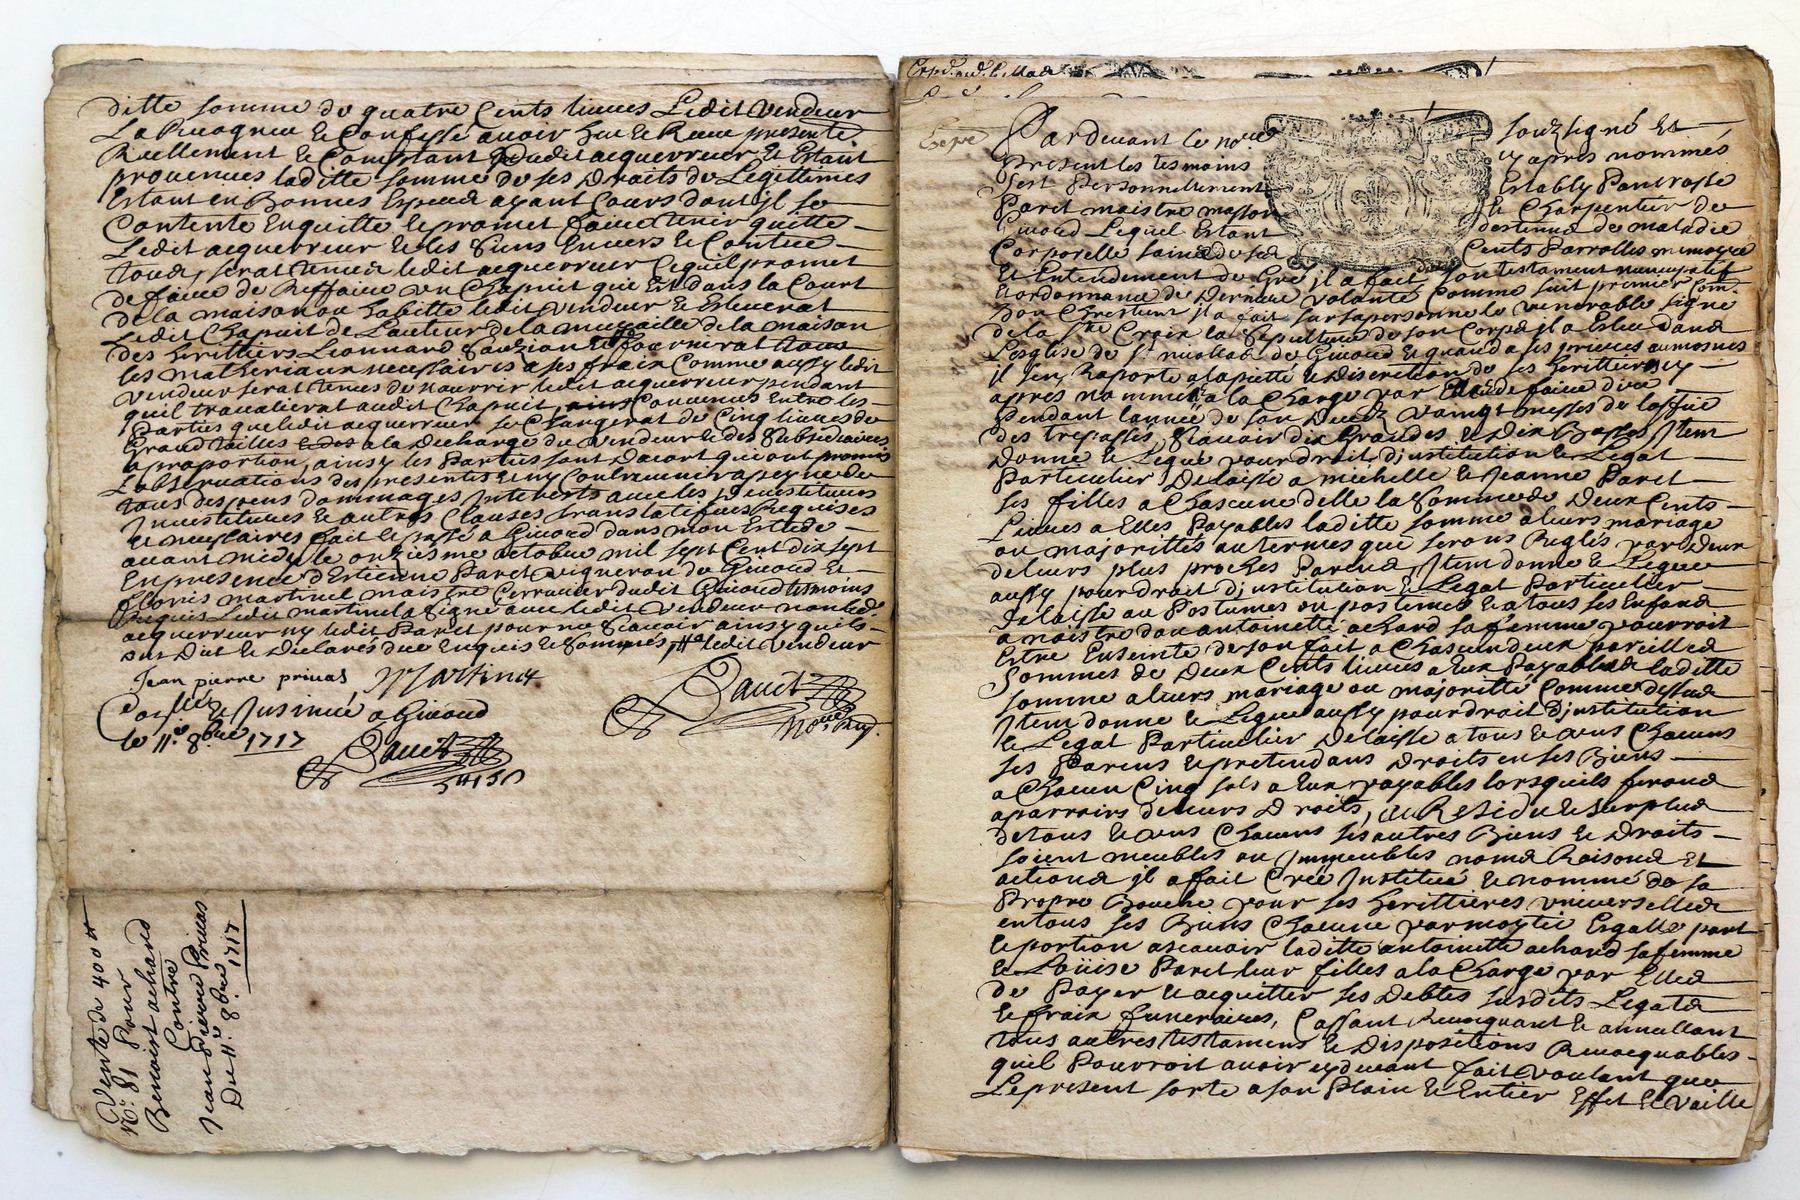 ditte somme de quatre Cents livres Ledit Vendeur
La Recogneu et Confessé avoir Heu et Receu presente
Reellement et Comptant dudit acquerreur Et Estant
provenues laditte somme de ses Droits de Legittimes
Estant en Bonnes Especes ayant Cours dont il se
Contente En quitte et promet faire tenir quitte
Ledit acquerreur et les siens Envers et Contre
tous, serat tenu ledit acquerreur Ce quil promet
de faire de Reffaire un Chapuit que Est dans la Court
de la maison ou habitte ledit vendeur et Esleverat
Ledit Chapuit de Lauteur de la muraille de la maison
des herittiers Leonnard fournirat tous
les matheriaux necessaires a ses fraix Comme aussy ledit
vendeur serat tenus de nourrir ledit acquerreur pendant
quil travalierat audit Chapuit, Convenus Entre les
Parties que ledit acquerreur se Chargerat de Cinq livres de
Grand tailles a la decharge du vendeur et des subsidiaires
a proportion, ainsy les Parties sont dacort qui ont promis
Lobservations des presentes et ny Contrevenir a peyne de
tous despens dommages Interests avec les
Investitures et autres Clauses translatifves Requises
et necessaires fait et passé a Givord dans mon Estude
avant midy le onziesme octobre mil sept Cent dix sept
En presence d'Estienne Paret vigneron de Givord Et
Floris martinel maistre Cerrurier dudit Givord tesmoins
Requis Ledit martinel a signé avec ledit vendeur non led.
acquerreur ny ledit Paret pour ne scavoir ainsy quils
ont Dit et Declarés de ce Enquis et sommés ledit vendeur
Jean pierre privas Martinel
Con.llé et Insinué a Givord
le 11.e 8.bre 1717
Vente de 400 #
N.o 81 Pour
Benoist achard
Contre
Jean Pierre Privas
Du 11.e 8.bre 1717
Pardevant le no.re soubsigné Et
Present les tesmoins cy apres nommés
sest Personnellement Estably Pancrasse
Paret maistre masson et Charpentier de
Givord Lequel Estant destenue de maladie
Corporelle saine de ses Cents Parrolles memoyre
Et Entendement de Gré il a fait son testament nuncupatif
et ordonnance de Derniere volonté Comme suit premier Com.
Bon Chrestient il a fait sur sa personne le venerable signe
de la S.te Croix la Sepulture de son Corps il a Esleu dans
Lesglise de S.t nicollas de Givord et quand a ses prieres aumosnes
il sen Raporte a la piette et discretion de ses herittieres cy
apres nommées a la Charge par Elles de faire dire
Pendant lannée de son Deced vaingt messes de loffice
des trepassés, scavoir dix Grandes et dix Basses Item
Donne et Legue pour droit D'institution et Legat
Particulier Delaisse a michelle et Jeanne Paret
ses filles a Chascune delle la somme de Deux Cents
Livres a Elles Payables laditte somme a leurs mariage
ou majorittés au termes que serons Reglés par deux
de leurs plus proches Parens, Item donne et Legue
aussy pour droit D'institution et Legat Particulier
delaisse au Postumes ou postumes et a tous ses Enfans
a naistre dou antoinette achard sa femme pourroit
Estre Enseinte de son fait a Chascun deux pareilles
Sommes de Deux Cents livres a Eux Payables laditte
somme a leurs mariage ou majoritté Comme dessus
Item donne et Legue aussy pour droit D'institution
et Legat Particulier delaisse a tous et uns Chacuns
ses Parens et pretendans Droits en ses Biens
a Chacun Cinq sols a Eux payables lorsquils ferons
aparroirs de leurs Droits, au Residu et surplus
de tous et uns Chacuns ses autres Biens et Droits
soient meubles ou Immeubles noms Raisons Et
actions il a fait Crée Institué et nommé de sa
Propre Bouche pour ses herittieres universelles
en tous ses Biens Chacune par moytie Esgalle part
et portion ascavoir laditte antoinette achard sa femme
et Loüise Paret leur filles a la Charge par Elles
de Payer et acquitter ses Debtes susdits Legats
et fraix funeraires, Cassant Revoquant et annullant
tous autres testamens et dispositions Revocquables
quil Pourroit avoir cydevant fait voulant que
Le present sorte a son Plain et Entier Effet et vaille